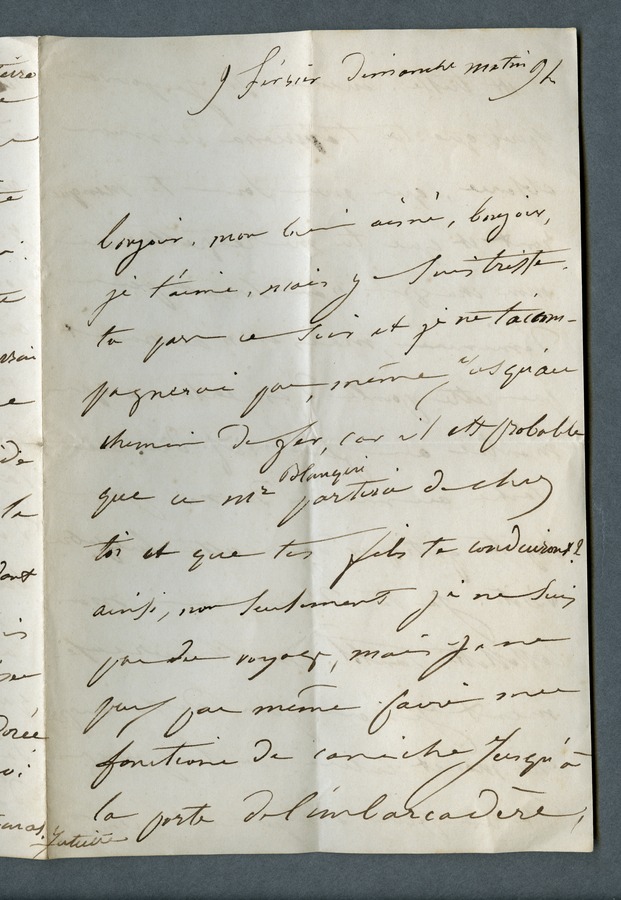 9 février dimanche matin 9 h
bonjour, mon bien aimé, bonjour,
je t'aime, mais je suis triste.
tu pars ce soir et je ne t'accom-
pagnerai pas même jusqu'au
chemin de fer, car il est probable
que ce mr Blanqui partira de chez
toi et que tes fils te conduiront ?
ainsi, non seulement je ne suis
pas du voyage, mais je ne
puis pas même faire mes
fonctions de caniche jusqu'à
la porte de l'embarcadère,